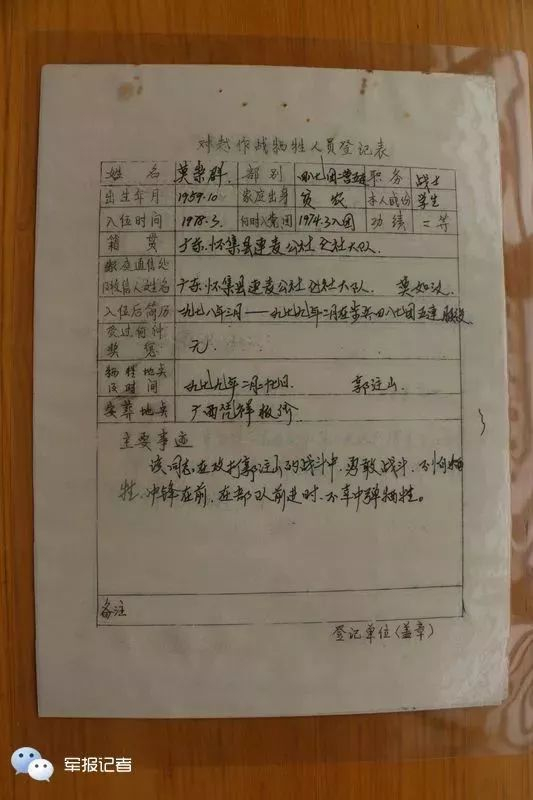 对越作战牺牲人员登记表
姓名 莫崇群 部别 四八七团二营五连 职务 战士
出生年月 1959.10 家庭出身 贫农 本人成份 学生
入伍时间 1978.3. 何时入党团 1974.3入团 功绩 二等
籍贯 广东怀集县连麦公社 社大队
家庭通信处 广东怀集县连麦公社 社大队. 莫如
收信人姓名
入伍后简历 一九七八年三月——一九七九年二月在 四八七团五连
受过何种
奖惩 无.
牺牲地点
及时间 一九七九年二月 日. 郭迳山.
安葬地点 广西凭祥板
主要事迹
该同志在攻打郭迳山的战斗中,勇敢战斗,不怕牺
牲,冲锋在前,在部队前进时,不幸中弹牺牲。
备注
登记单位(盖章)
军报记者